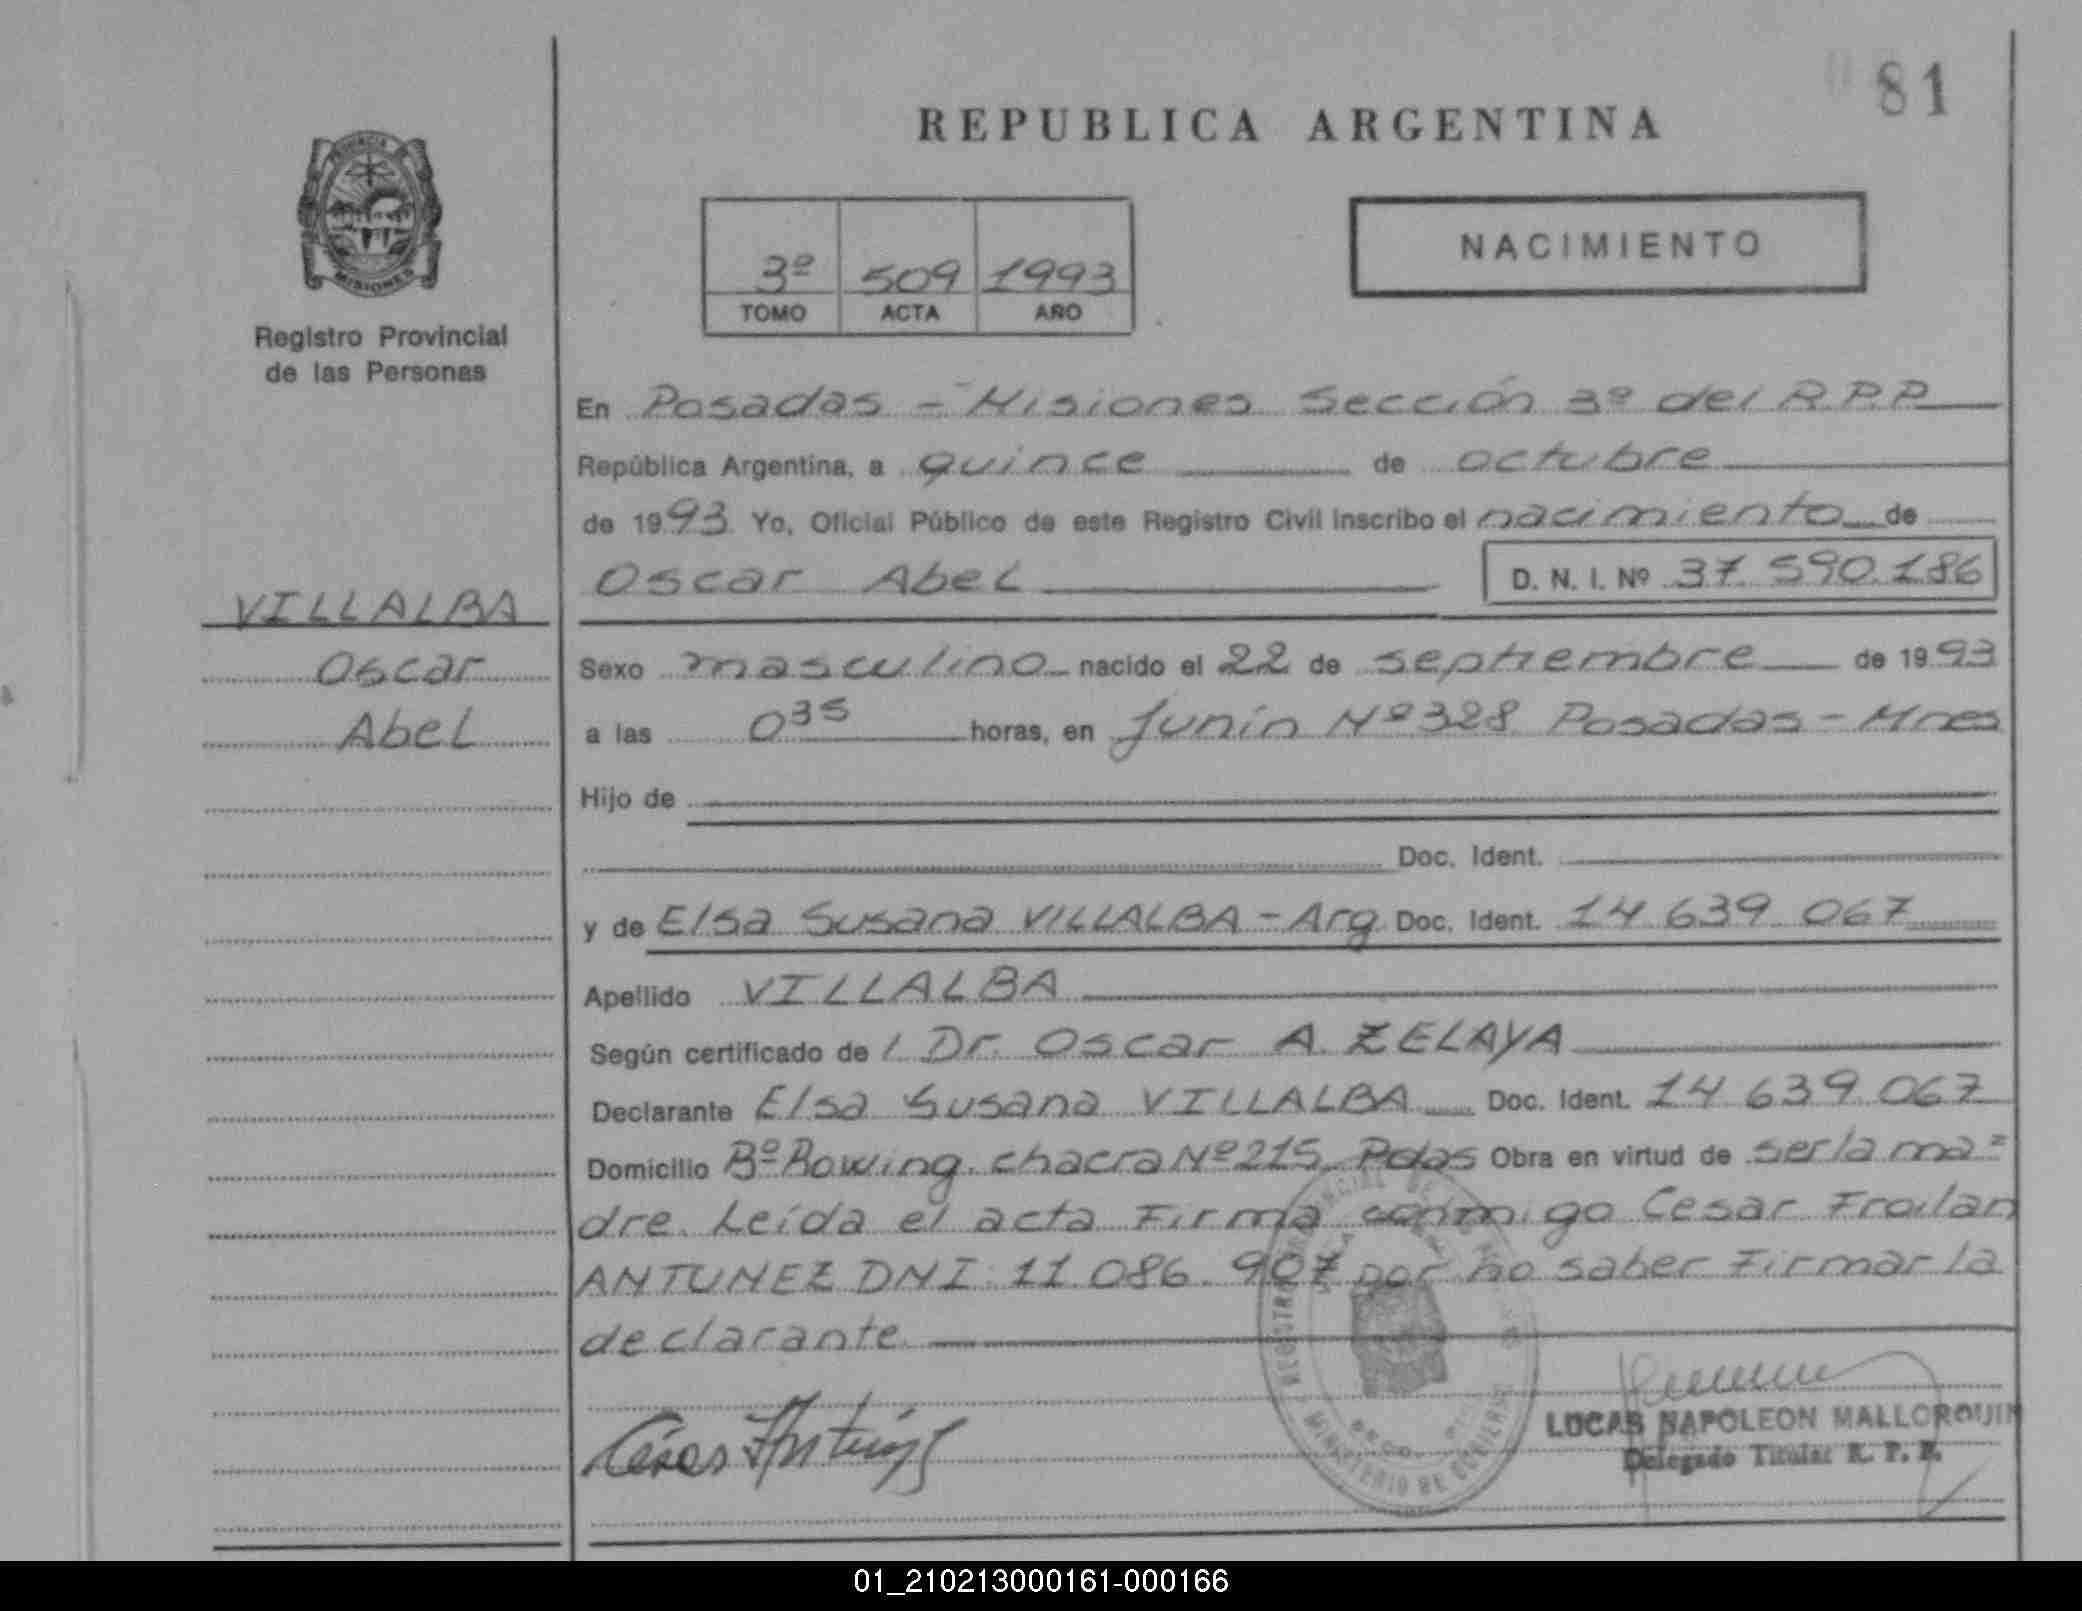 081
REPUBLICA ARGENTINA
PROVINCIA
MISIONES
Registro Provincial
de las Personas
3º 509 1993
TOMO ACTA AÑO
NACIMIENTO
En Posadas - Misiones Sección 3º del R.P.P
República Argentina, a quince de octubre
de 1993 Yo, Oficial Público de este Registro Civil inscribo el nacimiento de
Oscar Abel D. N. I. Nº 37.590.186
VILLALBA
Oscar
Abel
Sexo masculino nacido el 22 de septiembre de 1993
a las 0 35 horas, en Junín Nº 328 Posadas - Mnes
Hijo de
Doc. Ident.
y de Elsa Susana VILLALBA - Arg Doc. Ident. 14 639 067
Apellido VILLALBA
Según certificado de l Dr. Oscar A. ZELAYA
Declarante Elsa Susana VILLALBA Doc. Ident. 14 639 067
Domicilio Bº Rowing chacra Nº 215 Pdas Obra en virtud de ser la ma=
dre. Leída el acta Firma conmigo Cesar Froilan
ANTUNEZ DNI 11 086 907 por no saber Firmar la
declarante
Cesar Antunez
LUCAS NAPOLEON MALLORQUIN
Delegado Titular R. P. P.
MINISTERIO DE GOBIERNO
01_210213000161-000166